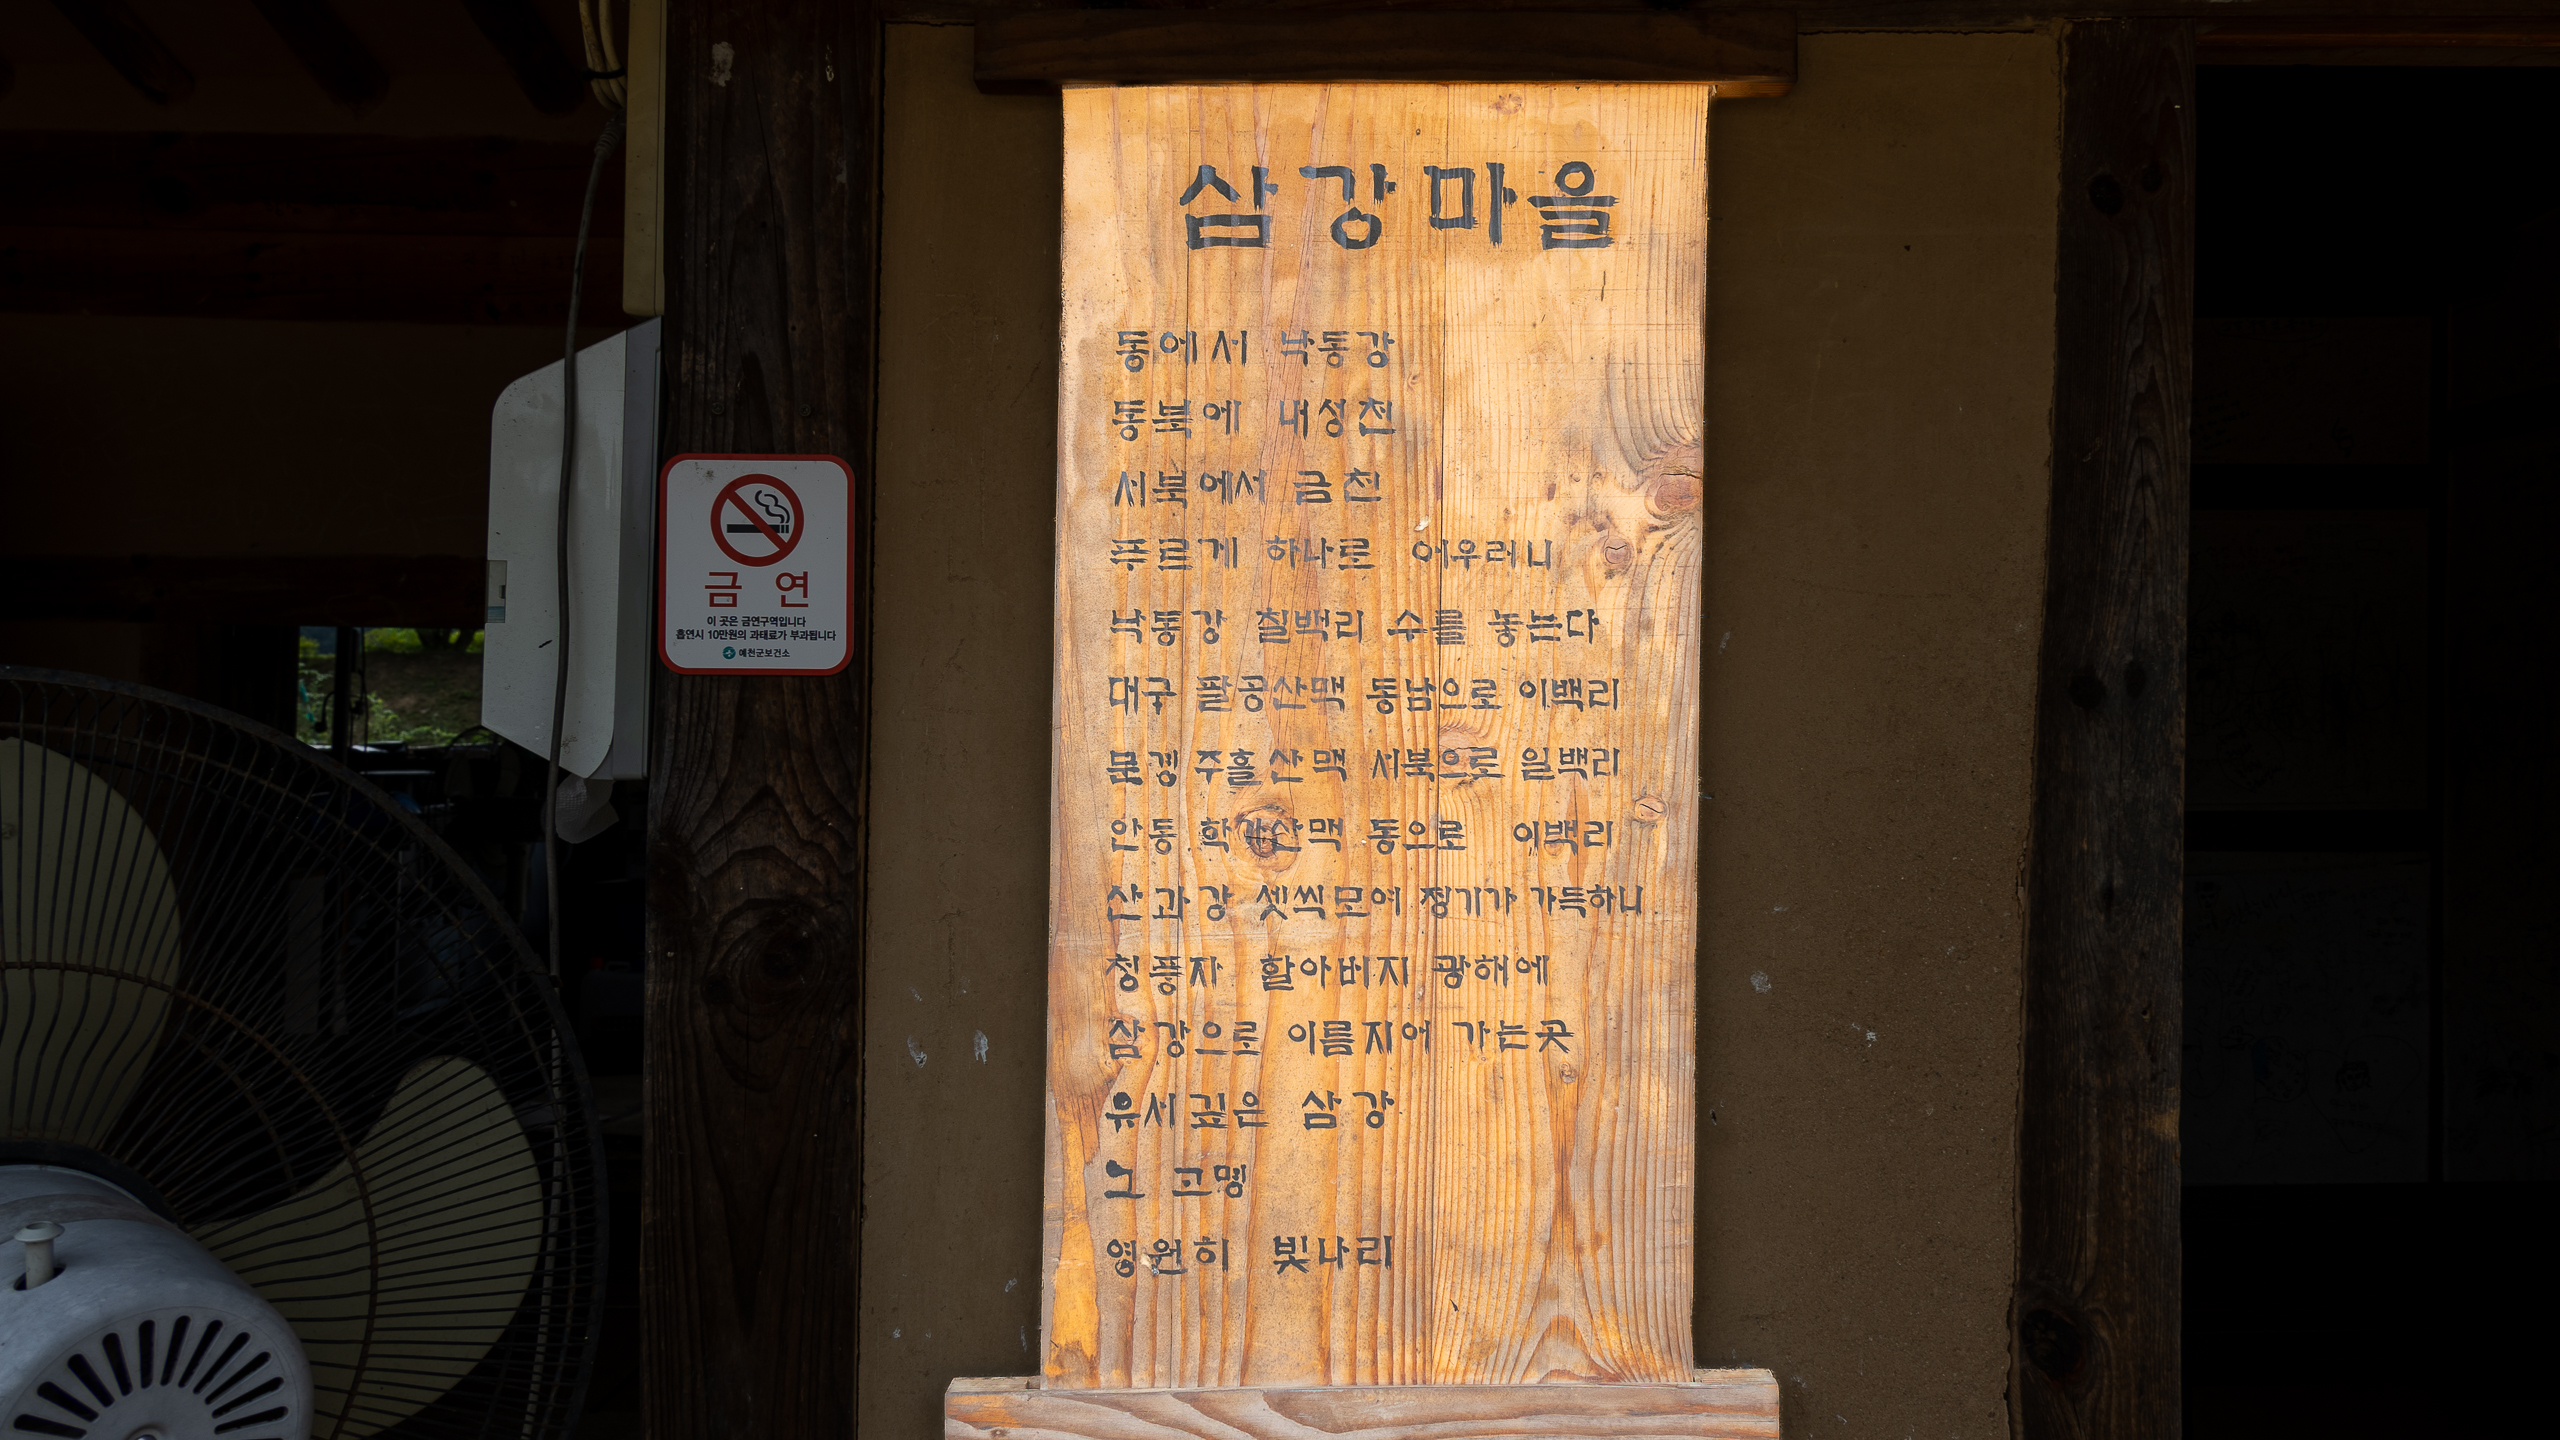 삼강마을
동에서 낙동강
동북에 내성천
서북에서 금천
푸르게 하나로 어우러니
낙동강 칠백리 수를 놓는다
대구 팔공산맥 동남으로 이백리
문경 주흘산맥 서북으로 일백리
안동 학가산맥 동으로 이백리
산과강 셋씩모여 정기가 가득하니
청풍자 할아버지 광해에
삼강으로 이름지어 가는곳
유서깊은 삼강
그 고명
영원히 빛나리
금연
이 곳은 금연구역입니다
흡연시 10만원의 과태료가 부과됩니다
예천군보건소